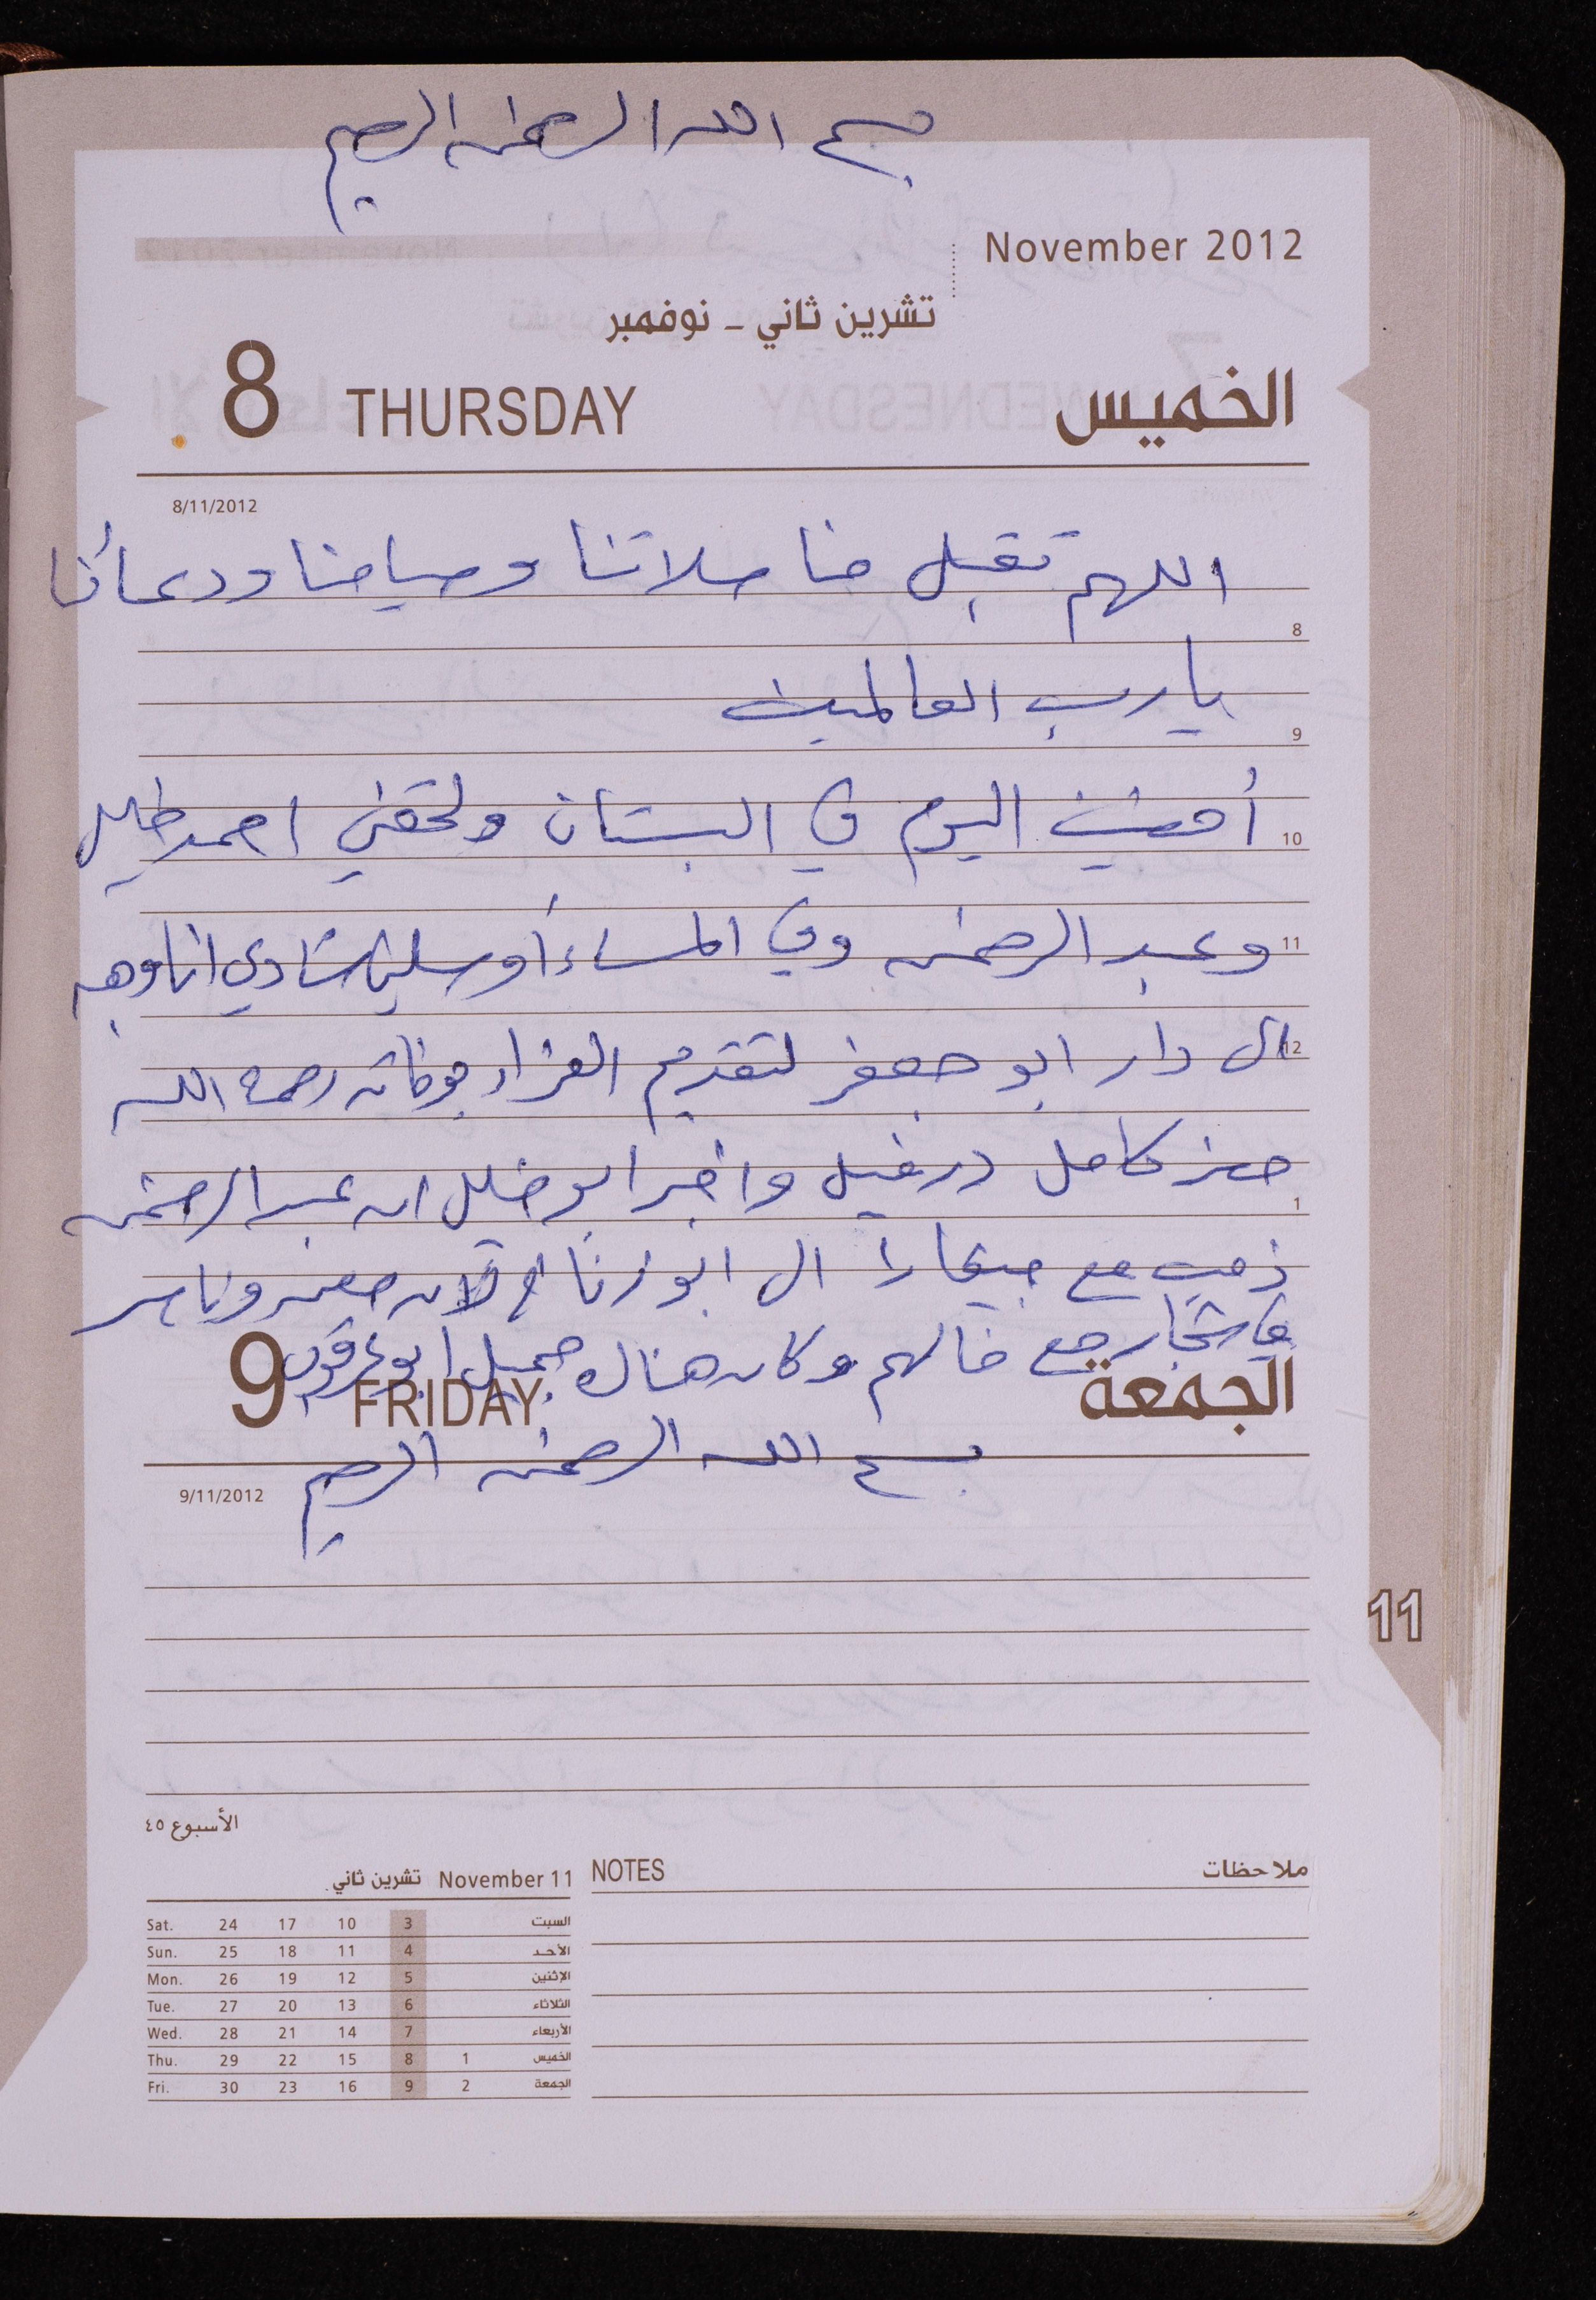 بسم الله الرحمن الرحيم
November 2012
تشرين ثاني - نوفمبر
الخميس THURSDAY 8
8/11/2012
اللهم تقبل منا صلاتنا وصيامنا ودعائنا
8
يا رب العالمين
9
أمضيت اليوم في البستان ولحقني احمد خليل
10
وعبد الرحمن وفي المساء أوصلني شادي انا وهبه
11
ال دار ابو جعفر لتقديم العزاء بوفاته رحمه الله
12
حضر كامل درغيل واخبر ابو خليل ان عبد الرحمن
1
ذهب مع ال ابو لان معتز وناصر
مع خالهم وكان هناك جميل ابو عرقوب
الجمعة FRIDAY 9
بسم الله الرحمن الرحيم
9/11/2012
11
الأسبوع ٤٥
ملاحظات NOTES
November 11 تشرين ثاني
السبت 3 10 17 24 Sat.
الأحد 4 11 18 25 Sun.
الإثنين 5 12 19 26 Mon.
الثلاثاء 6 13 20 27 Tue.
الأربعاء 7 14 21 28 Wed.
الخميس 1 8 15 22 29 Thu.
الجمعة 2 9 16 23 30 Fri.